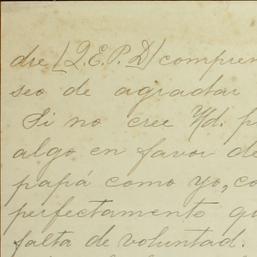 dre (Q.E.P.D) compren
seo de agradar
Si no cree Ud. p
algo en favor de
papá como yo, co
perfectamente qu
falta de voluntad.